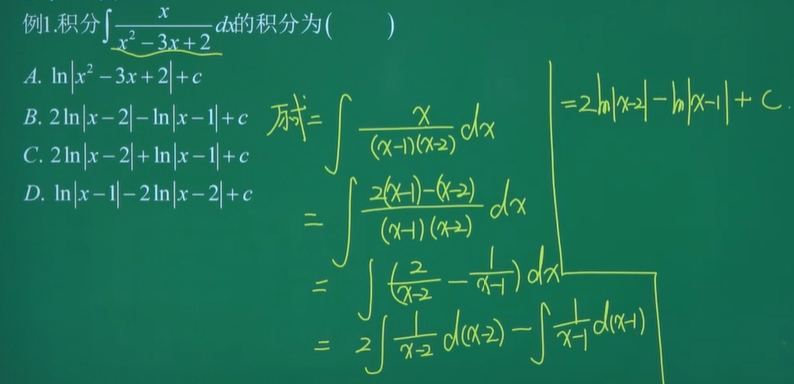 例1.积分∫ x/(x²-3x+2) dx的积分为(    )
A. ln|x²-3x+2|+c
B. 2ln|x-2|-ln|x-1|+c
C. 2ln|x-2|+ln|x-1|+c
D. ln|x-1|-2ln|x-2|+c
原式=∫ x/((x-1)(x-2)) dx
=∫ (2(x-1)-(x-2))/((x-1)(x-2)) dx
=∫ (2/(x-2) - 1/(x-1)) dx
=2∫ 1/(x-2) d(x-2) - ∫ 1/(x-1) d(x-1)
=2ln|x-2|-ln|x-1|+C.